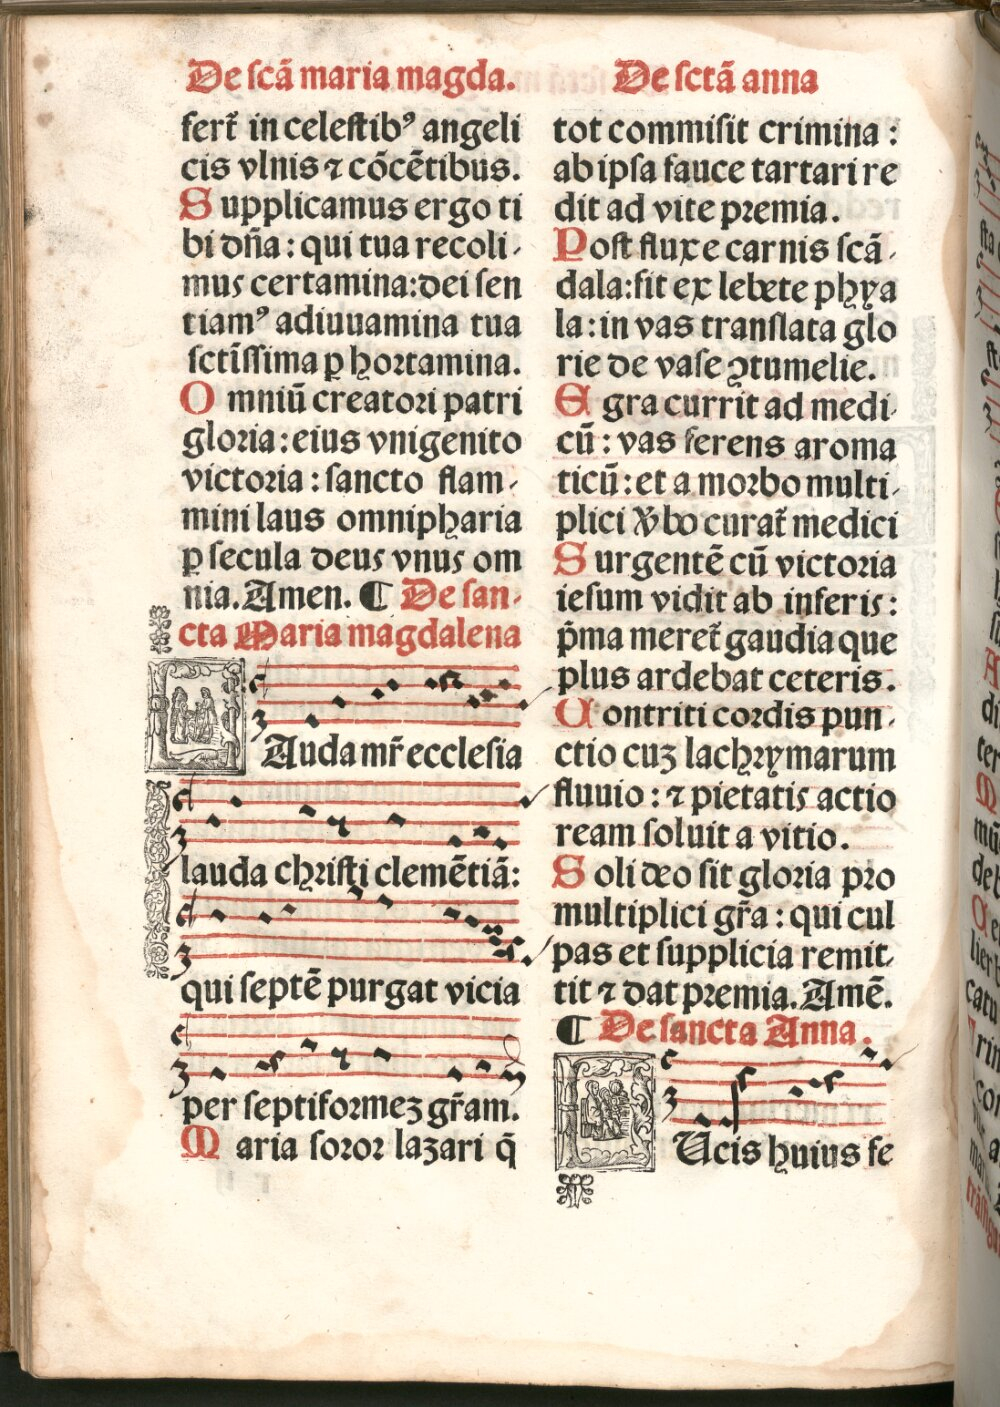 De scā maria magda.
fert᷑ in celestibꝰ angeli
cis vlnis ⁊ cōcētibus.
Supplicamus ergo ti
bi dn̄a : qui tua recoli-
mus certamina: dei sen
tiamꝰ adiuuamina tua
sctīssima ꝑ hortamina.
Omniū creatori patri
gloria : eius vnigenito
victoria : sancto flam-
mini laus omnipharia
ꝑ secula deus vnus om
nia. Amen. ¶ De san-
cta Maria magdalena
LAuda mr̄ ecclesia
lauda christi clemētiā:
qui septē purgat vicia
per septiformeꝫ gr̄am.
Maria soror lazari q̄
De sctā anna
tot commisit crimina :
ab ipsa fauce tartari re
dit ad vite premia.
Post fluxe carnis scā-
dala: fit ex lebete phya
la : in vas translata glo
rie de vase ꝯtumelie.
Egra currit ad medi-
cū : vas ferens aroma
ticū : et a morbo multi-
plici v̄bo curat᷑ medici
Surgentē cū victoria
iesum vidit ab inferis :
p̄ma meret᷑ gaudia que
plus ardebat ceteris.
Contriti cordis pun-
ctio cuꝫ lachrymarum
fluuio : ⁊ pietatis actio
ream soluit a vitio.
Soli deo sit gloria pro
multiplici gr̄a : qui cul
pas et supplicia remit-
tit ⁊ dat premia. Amē.
¶ De sancta Anna.
LUcis huius fe